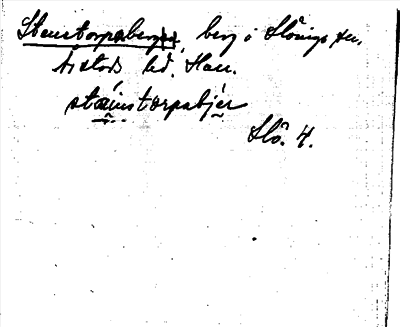 Stenstorpaberget, berg i Slöinge sn.
Årstads hd. Hall.
stäinstorpabjär
Slö. 4.